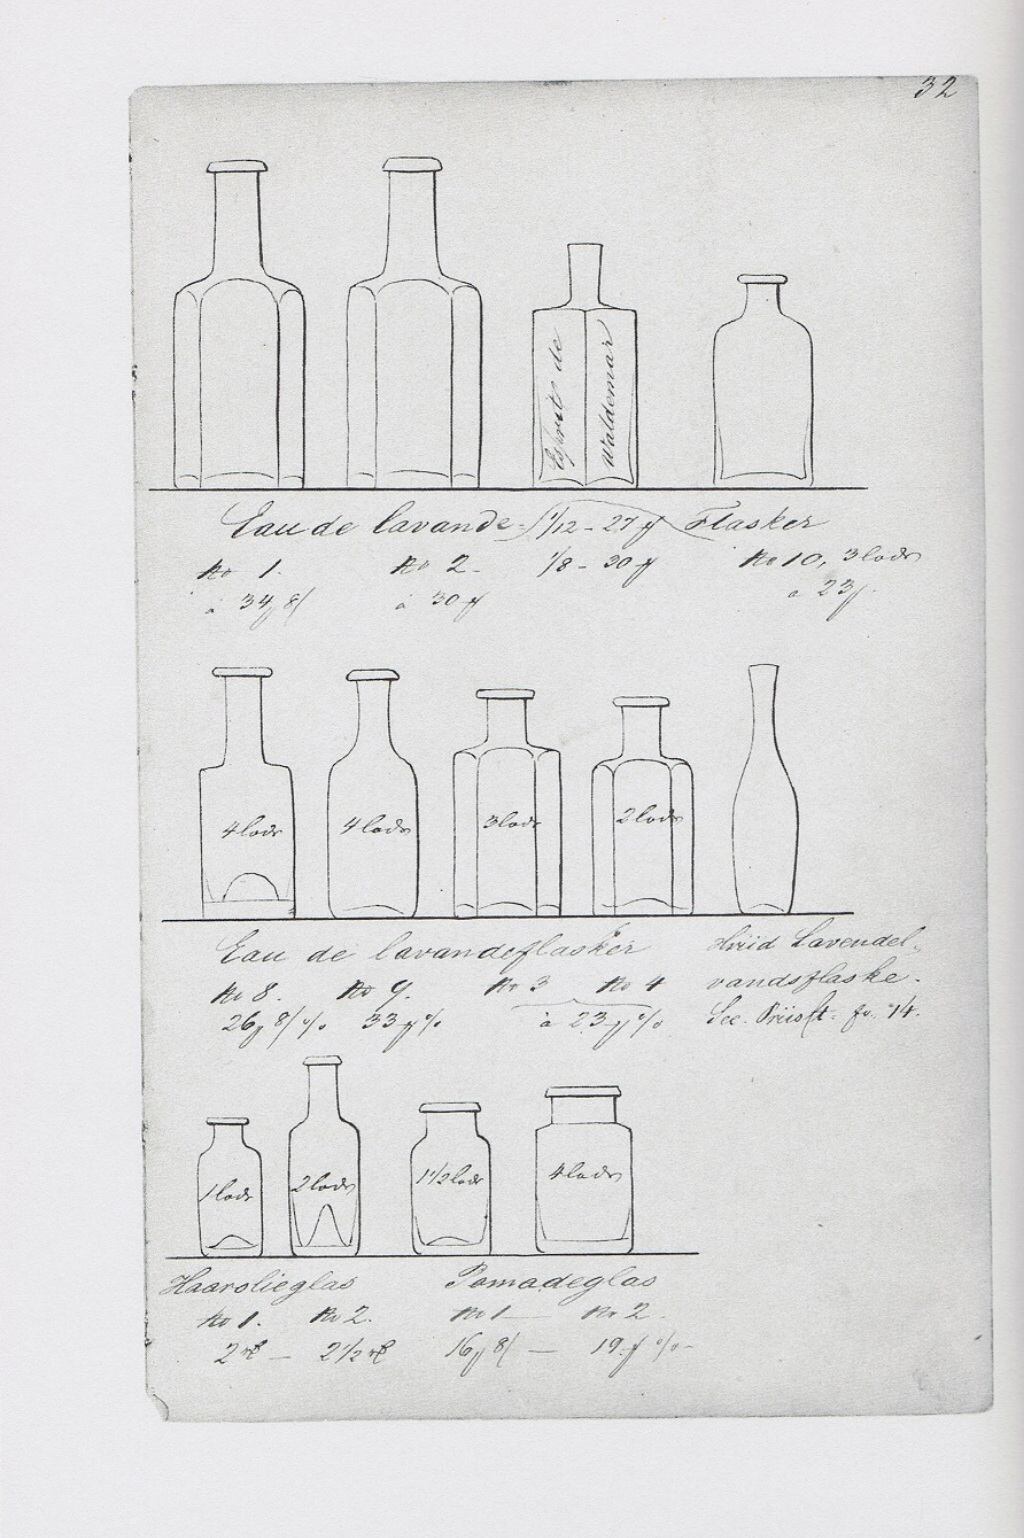 32
Esprit de
Waldemar
Eau de lavande- 1/12 - 27 Flasker
No 1. No 2. 1/8 - 30 No 10, 3 lods
à 34 8/ à 30 a 23
4 lods 4 lods 3 lods 2 lods
Eau de lavandeflasker Hvid Lavendel-
No 8. No 9. No 3 No 4 vandsflaske.
26 8/ % 33 % à 23 % See. fo. 14.
1 lods 2 lods 1 1/2 lods 4 lods
Haarolieglas Pomadeglas
No 1. No 2. No 1 — No 2.
2 — 2 1/2 16 8/ — 19 %